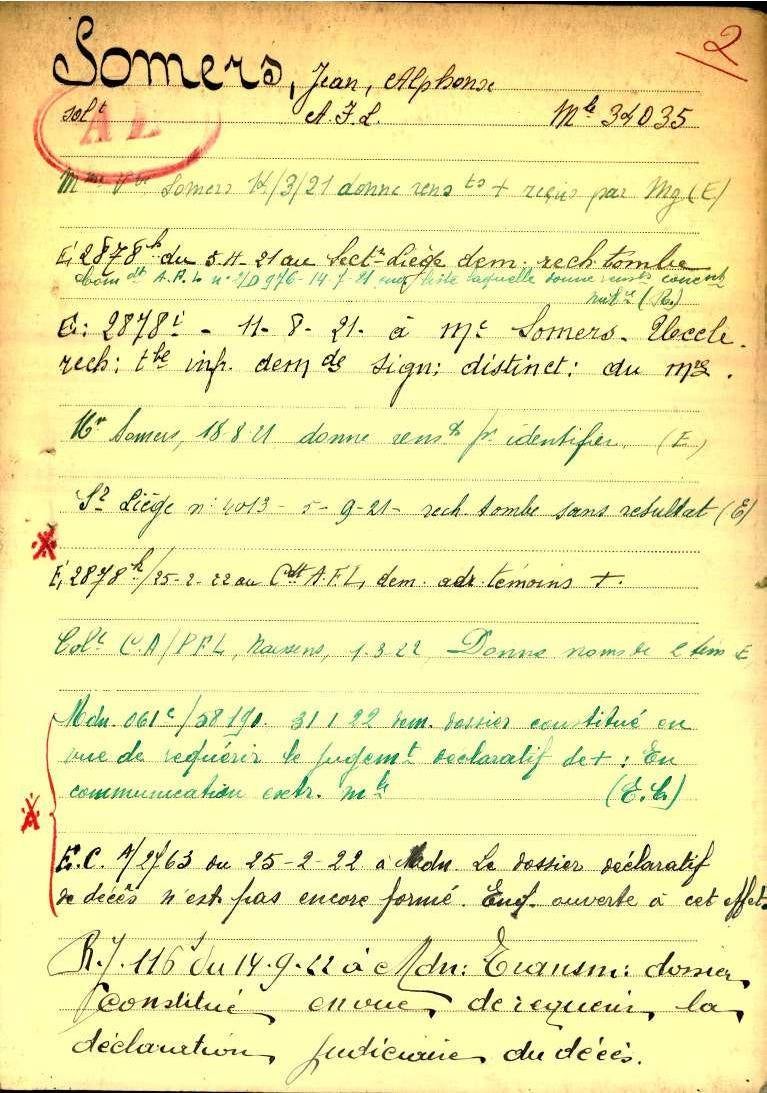 2
Somers, Jean, Alphonse
solt A.F.L. Mle 34035
AL
Mme Vve Somers 14/3/21 donne rensts + reçus par Mg (E)
E, 2878h du 5.4-21 au Sectr Liège dem: rech tombe
Comdt A.F.L n° 2/0976-14-7-21 liste laquelle donne
(R)
E: 2878i - 11-8-21. à Mr Somers. Uccle.
rech: tbe inf. demde sign: distinct: du mre.
Mr Somers, 18-8-21 donne rensts pr identifier. (E.)
Sr Liège n° 4013 - 5-9-21- rech tombe sans resultat (E)
E, 2878h/25-2-22 au Cdt A.F.L, dem. adr. témoins +.
Colt C.A/PFL, 1.3.22, Donne noms de 2 tém E
Mdn. 061c/58190. 31 1 22 dem. dossier constitué en
vue de requérir le jugemt déclaratif de + : En
communication extr. mle (E.C)
E.C. A/2763 du 25-2-22 à Mdn. Le dossier déclaratif
de décès n'est pas encore formé. Enq. ouverte à cet effet.
R.J. 116 du 14.9.22 à Mdn: Transm: dossier
constitué en vue de requérir la
déclaration judiciaire du décès.